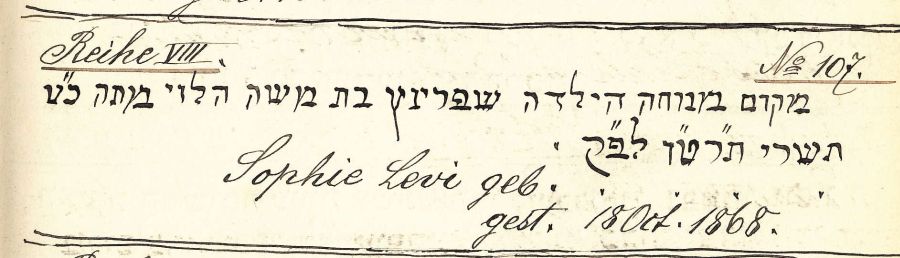 Reihe VIII.
No 107.
מקום מנוחה הילדה שפרינץ בת משה הלוי מתה כ"ט
תשרי ת"רט"ן לפ"ק.
Sophie Levi geb.
gest. 18 Oct. 1868.